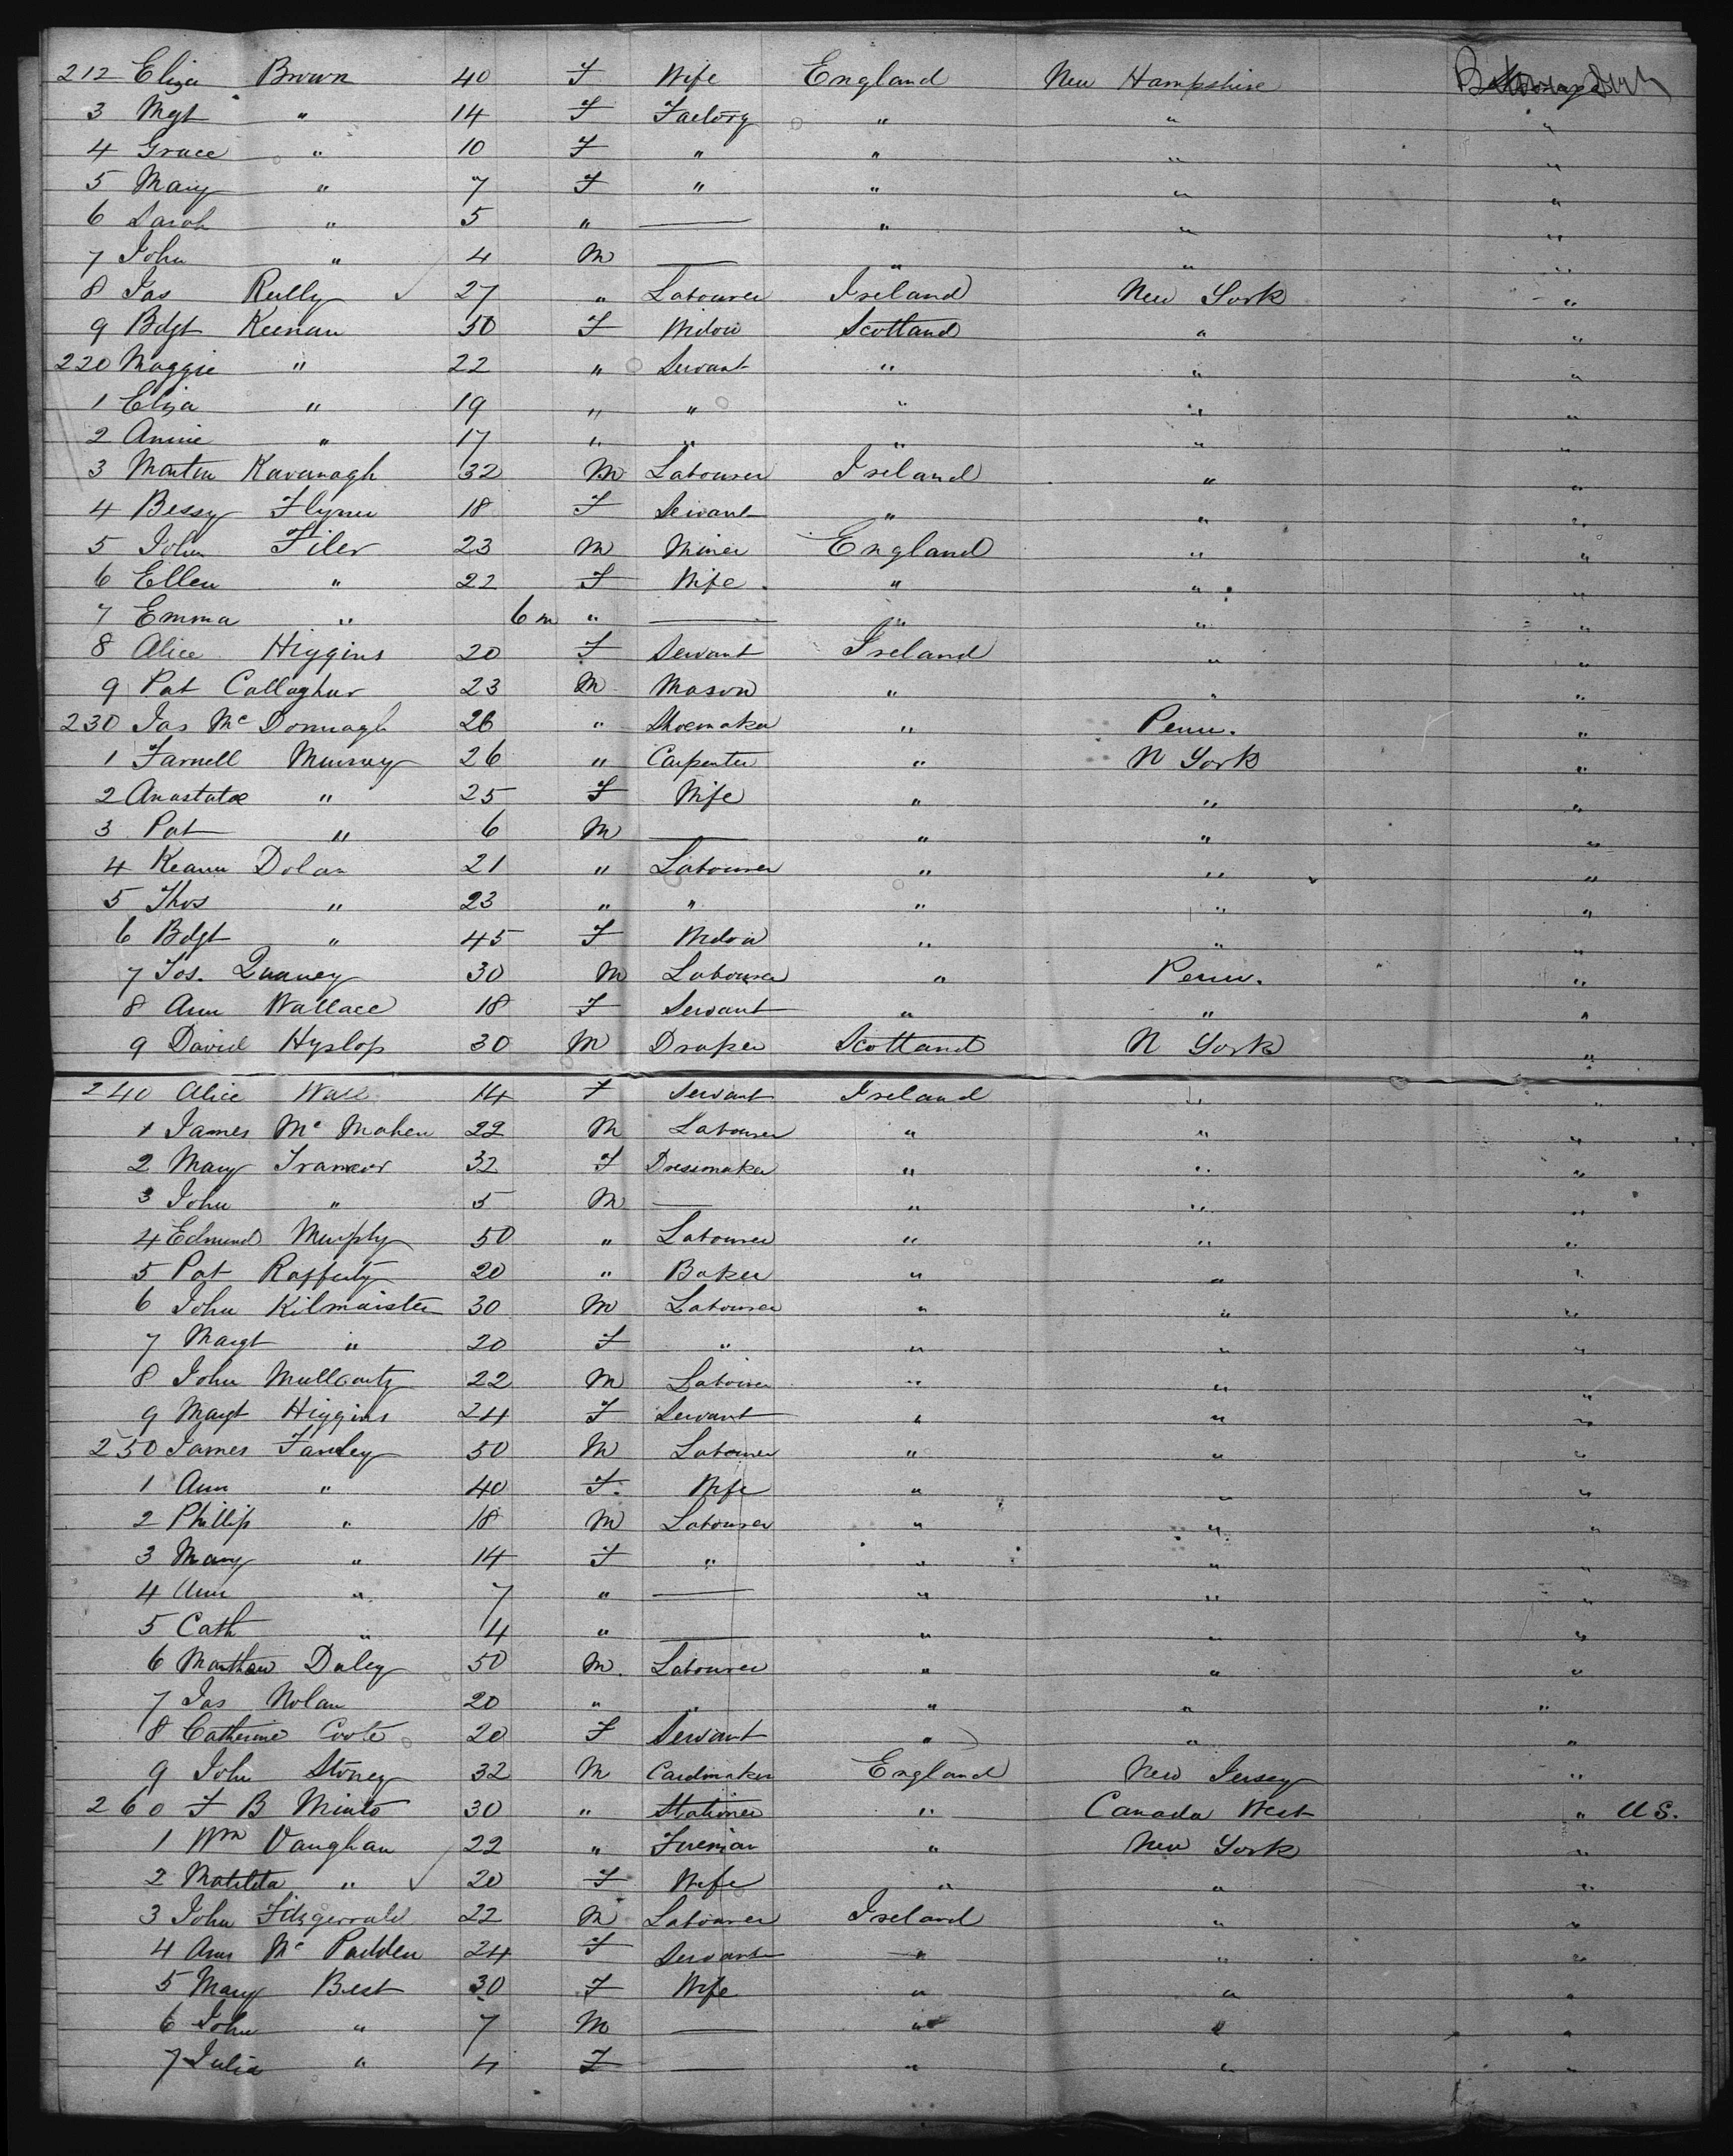 212 Eliza Brown 40 F Wife England New Hampshire
3 Mgt " 14 F Factory " " "
4 Grace " 10 F " " " "
5 Mary " 7 F " " " "
6 Sarah " 5 " — " " "
7 John " 4 M — " " "
8 Jas Reilly ✓ 27 " Labourer Ireland New York "
9 Bdgt Keenan 50 F Widow Scotland " "
220 Maggie " 22 " Servant " " "
1 Eliza " 19 " " " " "
2 Annie " 17 " " " " "
3 Martin Kavanagh 32 M Labourer Ireland " "
4 Bessy Flynn 18 F Servant " " "
5 John Filer 23 M Miner England " "
6 Ellen " 22 F Wife " " "
7 Emma " 6 m " — " " "
8 Alice Higgins 20 F Servant Ireland " "
9 Pat Callaghar 23 M Mason " " "
230 Jas Mc Donnagh 26 " Shoemaker " Penn. "
1 Farnell Murray 26 " Carpenter " N York "
2 Anastatae " 25 F Wife " " "
3 Pat " 6 M — " " "
4 Keann Dolan 21 " Labourer " " "
5 Thos " 23 " " " " "
6 Bdgt " 45 F Widow " " "
7 Jos. Quaney 30 M Labourer " Penn. "
8 Ann Wallace 18 F Servant " " "
9 David Hyslop 30 M Draper Scotland N York "
240 Alice Wall 14 F Servant Ireland " "
1 James Mc Mahen 22 M Labourer " " "
2 Mary 32 F Dressmaker " " "
3 John " 5 M — " " "
4 Edmund Murphy 50 " Labourer " " "
5 Pat Rafferty 20 " Baker " " "
6 John Kilmaister 30 M Labourer " " "
7 Margt " 20 F " " " "
8 John Mullcarty 22 M Labourer " " "
9 Margt Higgins 24 F Servant " " "
250 James Farley 50 M Labourer " " "
1 Ann " 40 F. Wife " " "
2 Phillip " 18 M Labourer " " "
3 Mary " 14 F " " " "
4 Ann " 7 " — " " "
5 Cath " 4 " — " " "
6 Matthew Daley 50 M. Labourer " " "
7 Jas Nolan 20 " " " " "
8 Catherine Coote 20 F Servant " " "
9 John Stoney 32 M Cardmaker England New Jersey "
260 F B Minto 30 " Stationer " Canada West " U S.
1 Wm Vaughan 22 " Fireman " New York "
2 Matilda " ✓ 20 F Wife " " "
3 John Fitzgerrald 22 M Labourer Ireland " "
4 Ann Mc Padden 24 F Servant " " "
5 Mary Best 30 F Wife " " "
6 John " 7 M — " " "
7 Julia " 4 F — " " "